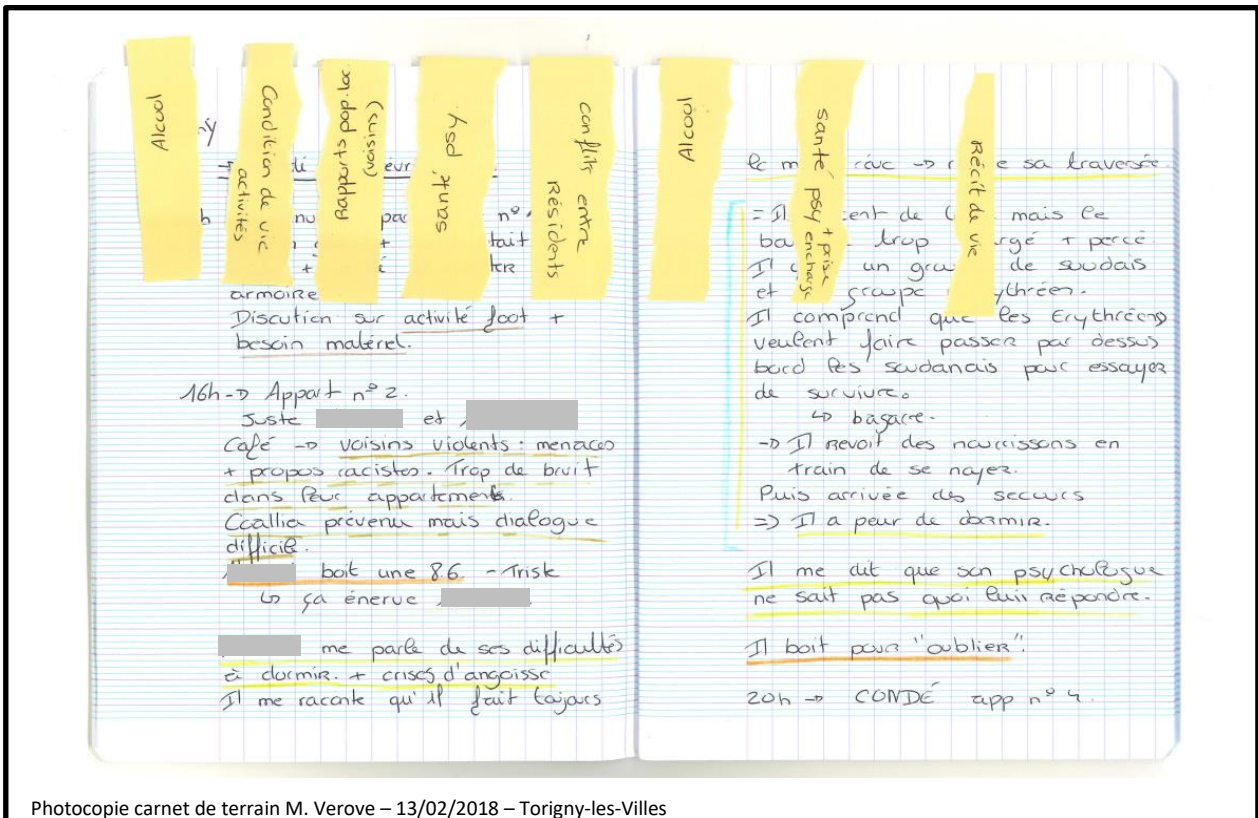 Alcool
Condition de vie
activités
Rapports pop. loc
(cuision)
santé psy.
conflits entre
Résidents
Alcool
santé psy + prise
en charge
Récit de vie
armoire
Discution sur activité foot +
besoin matérel.
16h -> Appart n° 2.
Juste et
Café -> voisins violents : menaces
+ propos racistes. Trop de bruit
dans leur appartement.
Coallia prévenu mais dialogue
difficile.
boit une 8.6 - Trisk
↳ ça énerve
me parle de ses difficultés
à dormir. + crises d'angoisse
Il me raconte qu'il fait toujours
sa traversée.
= Il de mais le
trop + percé
Il un de soudais
et
Il comprend que les Erythréens
veulent faire passer par dessus
bord les soudanais pour essayer
de survivre.
↳ bagarre.
-> Il revoit des nourrissons en
train de se noyer.
Puis arrivée des secours
=> Il a peur de dormir.
Il me dit que son psychologue
ne sait pas quoi luis répondre.
Il boit pour "oublier".
20h -> CONDÉ app n° 4.
Photocopie carnet de terrain M. Verove – 13/02/2018 – Torigny-les-Villes